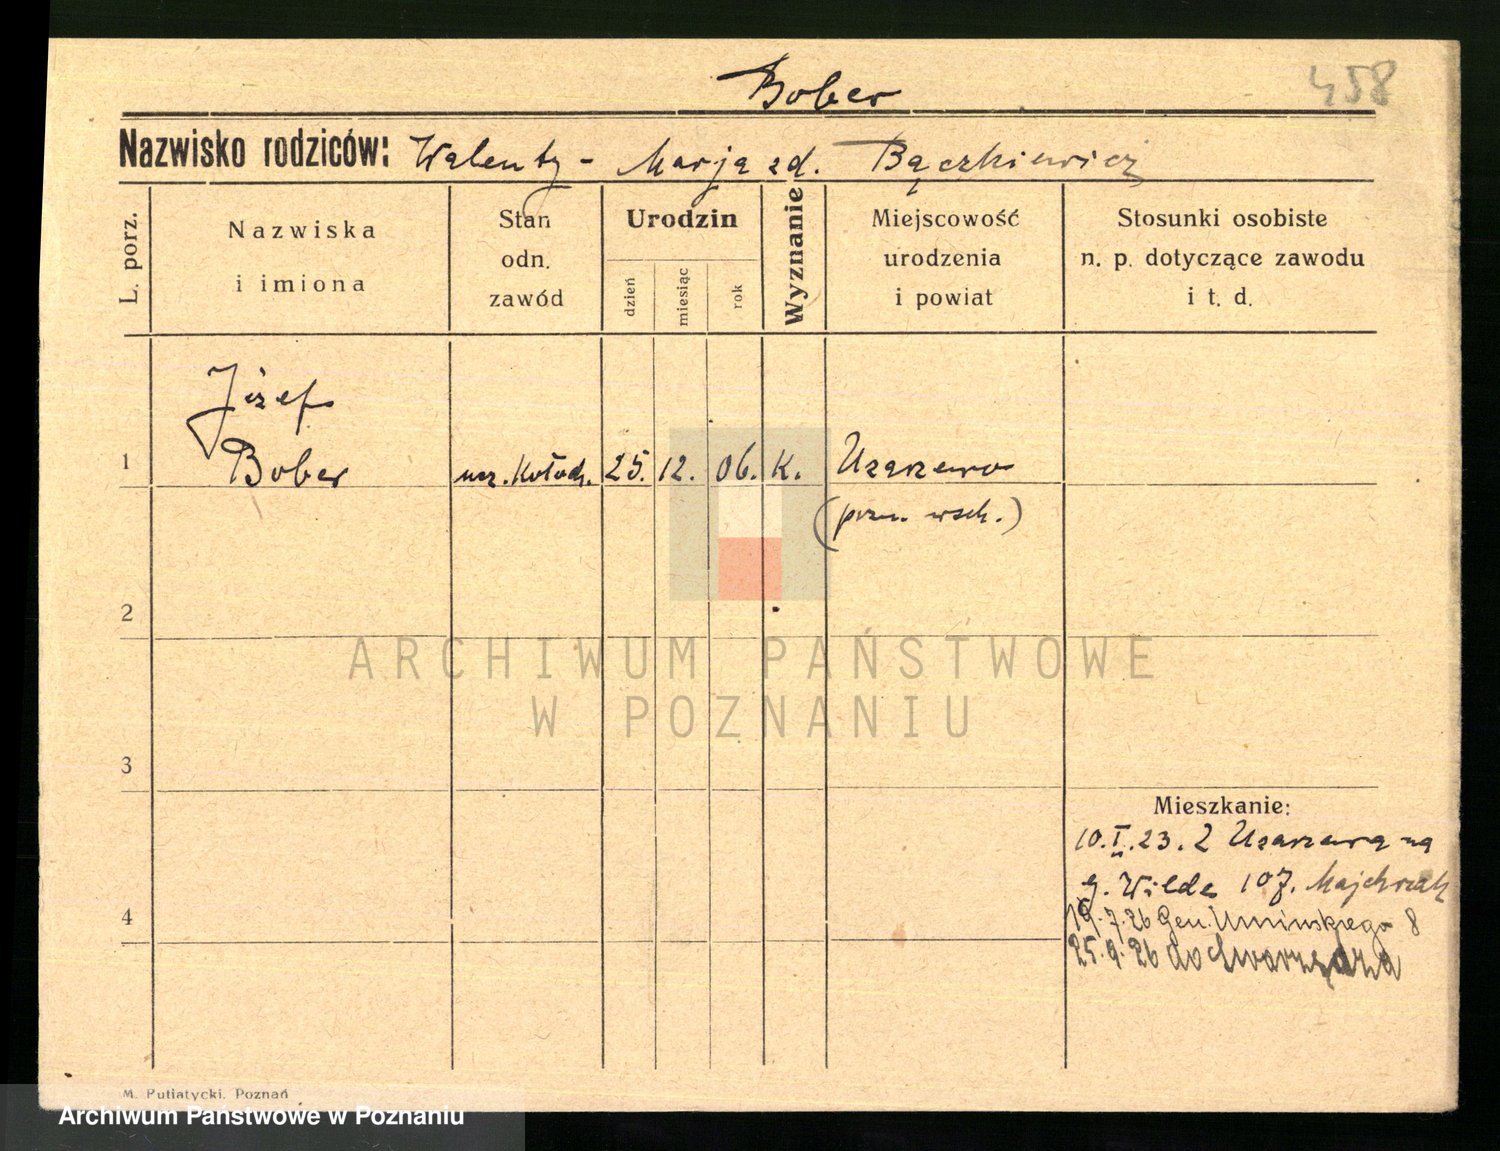 Bober
458
Nazwisko rodziców: Walenty - Marja zd. Bączkiewicz
L. porz.
Nazwiska
i imiona
Stan
odn.
zawód
Urodzin
dzień
miesiąc
rok
Wyznanie
Miejscowość
urodzenia
i powiat
Stosunki osobiste
n. p. dotyczące zawodu
i t. d.
Józef
1 Bober ucz. kołodz. 25. 12. 06. K. Uzarzewo
(pozn. wsch.)
2
ARCHIWUM PAŃSTWOWE
W POZNANIU
3
Mieszkanie:
10.I.23. z Uzarzewa na
g. Wilda 107. Majchrzak
4
19.7.26 Gen. Umińskiego 8
25.9.26 do Swarzędza
M. Putiatycki, Poznań
Archiwum Państwowe w Poznaniu